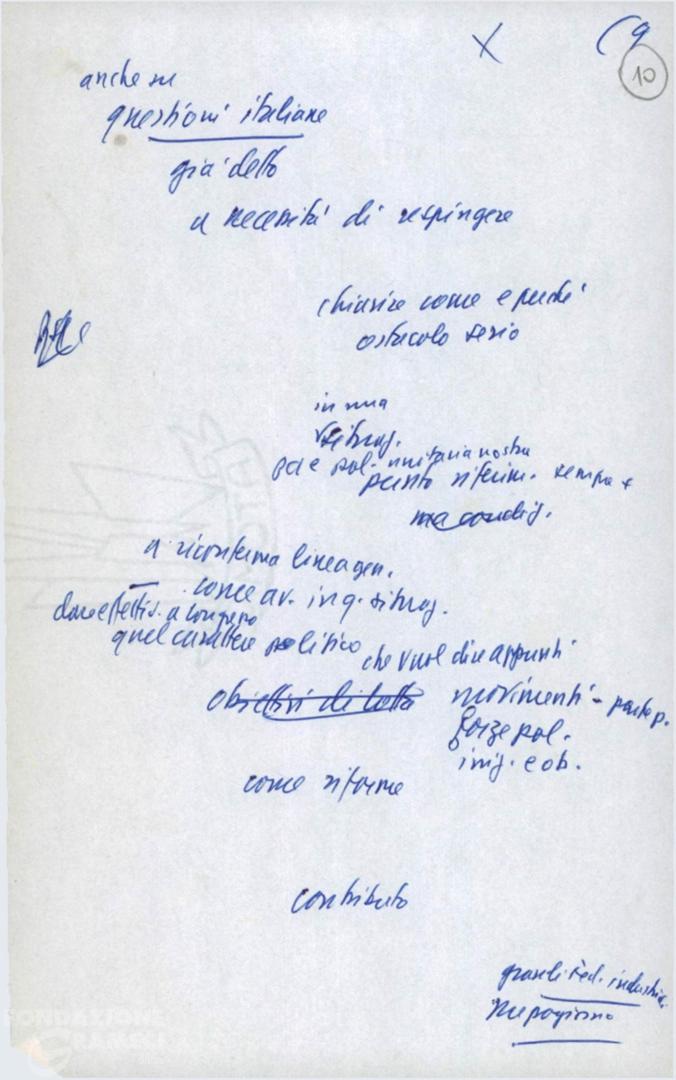 (9
10
anche su
questioni italiane
già detto
a necessità di respingere
chiarire come e perché
ostacolo serio
in una
situaz.
pol. unitaria nostra
punto riferim. sempre +
ma condiz.
a riconferma linea gen.
come av. in q. situaz.
quel carattere politico
che vuol dire appunti
obiettivi di lotta
movimenti - partep.
forze pol.
iniz. e ob.
come riforme
contributo
grandi Fed. industria.
Mezzogiorno
FONDAZIONE
GRAMSCI